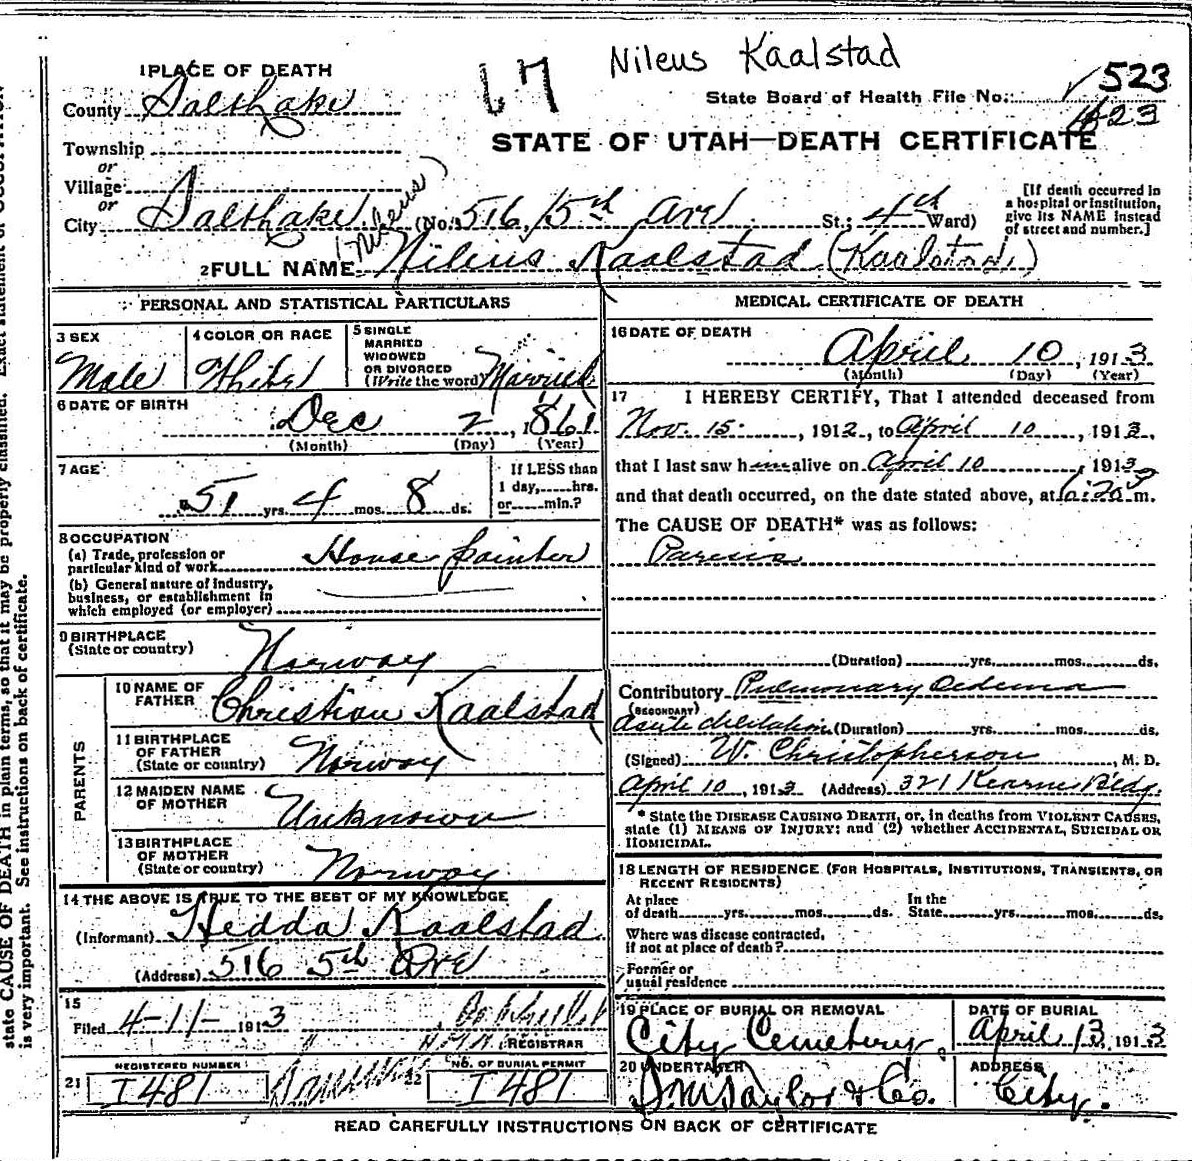 Nileus Kaalstad
67
1 PLACE OF DEATH
County Salt Lake
State Board of Health File No. 523
1623
STATE OF UTAH—DEATH CERTIFICATE
Township
or
Village
or
City Salt Lake (No. 516, 5th Ave St.; 4th Ward)
[If death occurred in a hospital or institution, give its NAME instead of street and number.]
(Nileus)
2 FULL NAME Nileus Kaalstad (Kaalstad.)
PERSONAL AND STATISTICAL PARTICULARS
3 SEX
Male
4 COLOR OR RACE
White
5 SINGLE
MARRIED
WIDOWED
OR DIVORCED
(Write the word) Married
6 DATE OF BIRTH
Dec 2, 1861
(Month) (Day) (Year)
7 AGE
51 yrs. 4 mos. 8 ds.
If LESS than
1 day, hrs.
or min.?
8 OCCUPATION
(a) Trade, profession or
particular kind of work House painter
(b) General nature of industry,
business, or establishment in
which employed (or employer)
9 BIRTHPLACE
(State or country) Norway
PARENTS
10 NAME OF
FATHER Christian Kaalstad
11 BIRTHPLACE
OF FATHER
(State or country) Norway
12 MAIDEN NAME
OF MOTHER Unknown
13 BIRTHPLACE
OF MOTHER
(State or country) Norway
14 THE ABOVE IS TRUE TO THE BEST OF MY KNOWLEDGE
(Informant) Hedda Kaalstad
(Address) 516 5th Ave
15
Filed 4-11- 1913
REGISTRAR
21 REGISTERED NUMBER
I 481
22 No. OF BURIAL PERMIT
I 481
MEDICAL CERTIFICATE OF DEATH
16 DATE OF DEATH
April 10, 1913
(Month) (Day) (Year)
17 I HEREBY CERTIFY, That I attended deceased from
Nov. 15, 1912, to April 10, 1913,
that I last saw him alive on April 10, 1913
and that death occurred, on the date stated above, at m.
The CAUSE OF DEATH* was as follows:
Paresis
(Duration) yrs. mos. ds.
Contributory Pulmonary Oedema
(SECONDARY)
acute dilitation (Duration) yrs. mos. ds.
(Signed) W. Christopherson, M. D.
April 10, 1913 (Address) 321 Kearns Bldg.
* State the DISEASE CAUSING DEATH, or, in deaths from VIOLENT CAUSES,
state (1) MEANS OF INJURY; and (2) whether ACCIDENTAL, SUICIDAL OR
HOMICIDAL.
18 LENGTH OF RESIDENCE (FOR HOSPITALS, INSTITUTIONS, TRANSIENTS, OR
RECENT RESIDENTS)
At place
of death yrs. mos. ds.
In the
State yrs. mos. ds.
Where was disease contracted,
if not at place of death?
Former or
usual residence
19 PLACE OF BURIAL OR REMOVAL
City Cemetery.
DATE OF BURIAL
April 13, 1913
20 UNDERTAKER
S. M. Taylor & Co.
ADDRESS
City.
READ CAREFULLY INSTRUCTIONS ON BACK OF CERTIFICATE
state CAUSE OF DEATH in plain terms, so that it may be properly classified. Exact statement of
is very important. See instructions on back of certificate.